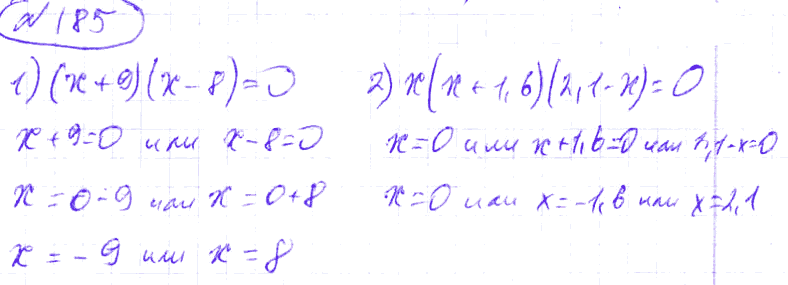 №185
1) (x+9)(x-8)=0
x+9=0 или x-8=0
x=0-9 или x=0+8
x=-9 или x=8
2) x(x+1,6)(2,1-x)=0
x=0 или x+1,6=0 или 2,1-x=0
x=0 или x=-1,6 или x=2,1